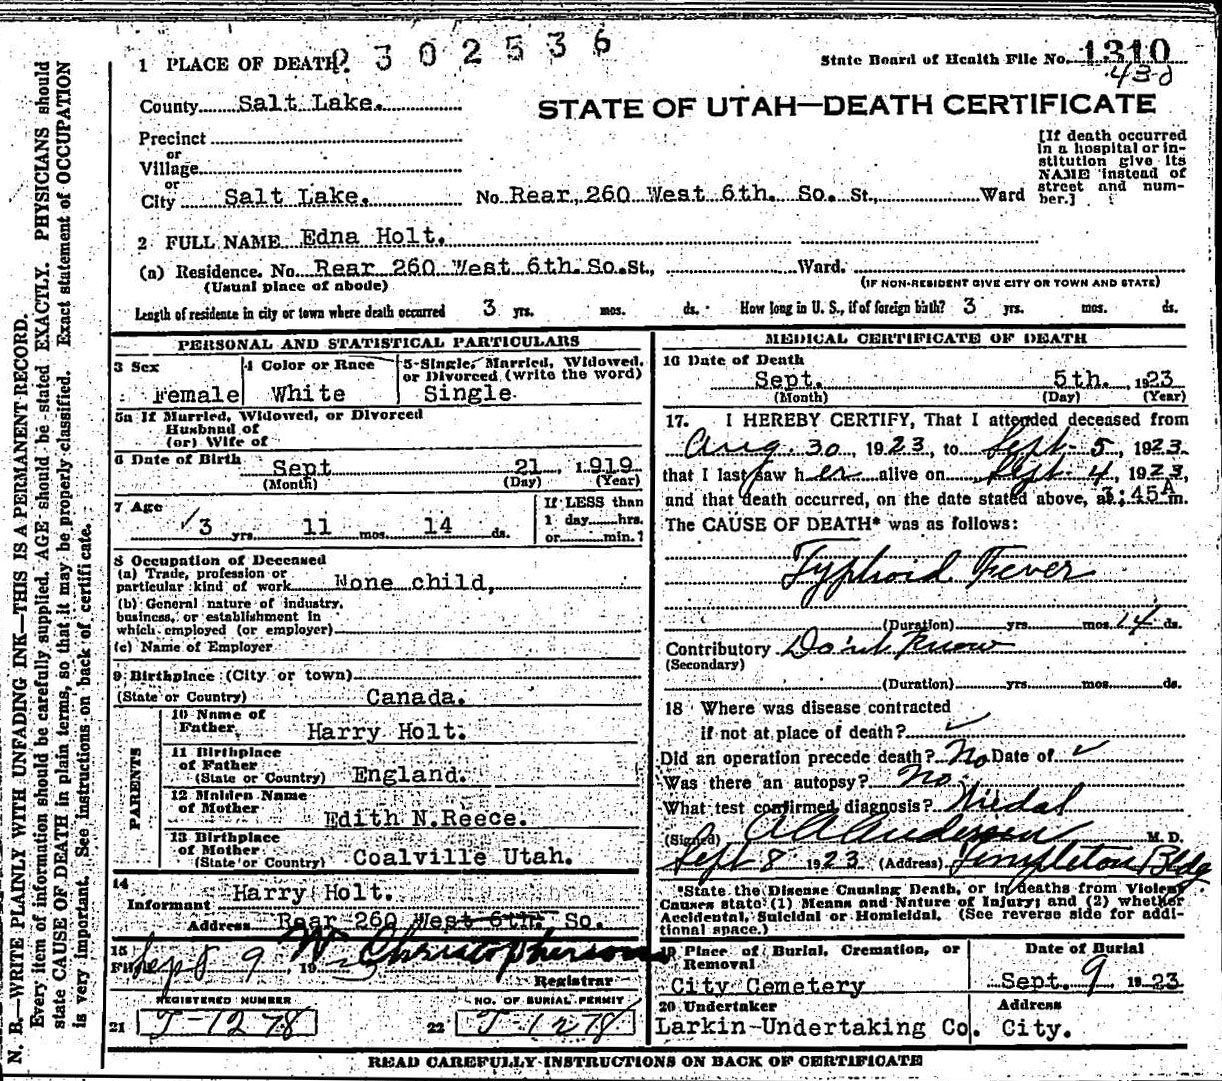 2302536
State Board of Health File No. 1310
430
1 PLACE OF DEATH
County Salt Lake.
STATE OF UTAH—DEATH CERTIFICATE
Precinct
or
Village
or
City Salt Lake. No. Rear, 260 West 6th. So. St., Ward
[If death occurred
in a hospital or in-
stitution give its
NAME instead of
street and num-
ber.]
2 FULL NAME Edna Holt.
(a) Residence. No. Rear 260 West 6th. So. St., Ward.
(Usual place of abode) (IF NON-RESIDENT GIVE CITY OR TOWN AND STATE)
Length of residence in city or town where death occurred 3 yrs. mos. ds. How long in U. S., if of foreign birth? 3 yrs. mos. ds.
PERSONAL AND STATISTICAL PARTICULARS
3 Sex
Female
4 Color or Race
White
5 Single, Married, Widowed,
or Divorced (write the word)
Single
5a If Married, Widowed, or Divorced
Husband of
(or) Wife of
6 Date of Birth Sept 21 , 1919
(Month) (Day) (Year)
7 Age
3 yrs. 11 mos. 14 ds.
If LESS than
1 day......hrs.
or......min.?
8 Occupation of Deceased
(a) Trade, profession or
particular kind of work None child,
(b) General nature of industry,
business, or establishment in
which employed (or employer)
(c) Name of Employer
9 Birthplace (City or town)
(State or Country) Canada.
PARENTS
10 Name of
Father Harry Holt.
11 Birthplace
of Father
(State or Country) England.
12 Maiden Name
of Mother
Edith N.Reece.
13 Birthplace
of Mother
(State or Country) Coalville Utah.
14
Informant Harry Holt.
Address Rear 260 West 6th. So.
15
Filed Sep 9 19 W. Christopherson
Registrar
REGISTERED NUMBER
21 J-1278
NO. OF BURIAL PERMIT
22 J-1278
MEDICAL CERTIFICATE OF DEATH
16 Date of Death
Sept. 5th. , 1923
(Month) (Day) (Year)
17. I HEREBY CERTIFY, That I attended deceased from
Aug. 30, 1923, to Sept. 5, 1923.
that I last saw her alive on Sept. 4, 1923,
and that death occurred, on the date stated above, at 3:45A m.
The CAUSE OF DEATH* was as follows:
Typhoid Fever
(Duration) yrs. mos. 14 ds.
Contributory Don't Know
(Secondary)
(Duration) yrs. mos. ds.
18 Where was disease contracted
if not at place of death?
Did an operation precede death? No Date of
Was there an autopsy? No.
What test confirmed diagnosis? Wiedal
(Signed) A A Anderson M. D.
Sept 8 1923 (Address) Templeton Bldg
*State the Disease Causing Death, or in deaths from Violent
Causes state (1) Means and Nature of Injury; and (2) whether
Accidental, Suicidal or Homicidal. (See reverse side for addi-
tional space.)
19 Place of Burial, Cremation, or
Removal
City Cemetery
Date of Burial
Sept. 9 1923
20 Undertaker
Larkin-Undertaking Co.
Address
City.
READ CAREFULLY INSTRUCTIONS ON BACK OF CERTIFICATE
N. B.—WRITE PLAINLY WITH UNFADING INK—THIS IS A PERMANENT RECORD.
Every item of information should be carefully supplied. AGE should be stated EXACTLY. PHYSICIANS should
state CAUSE OF DEATH in plain terms, so that it may be properly classified. Exact statement of OCCUPATION
is very important. See instructions on back of certificate.